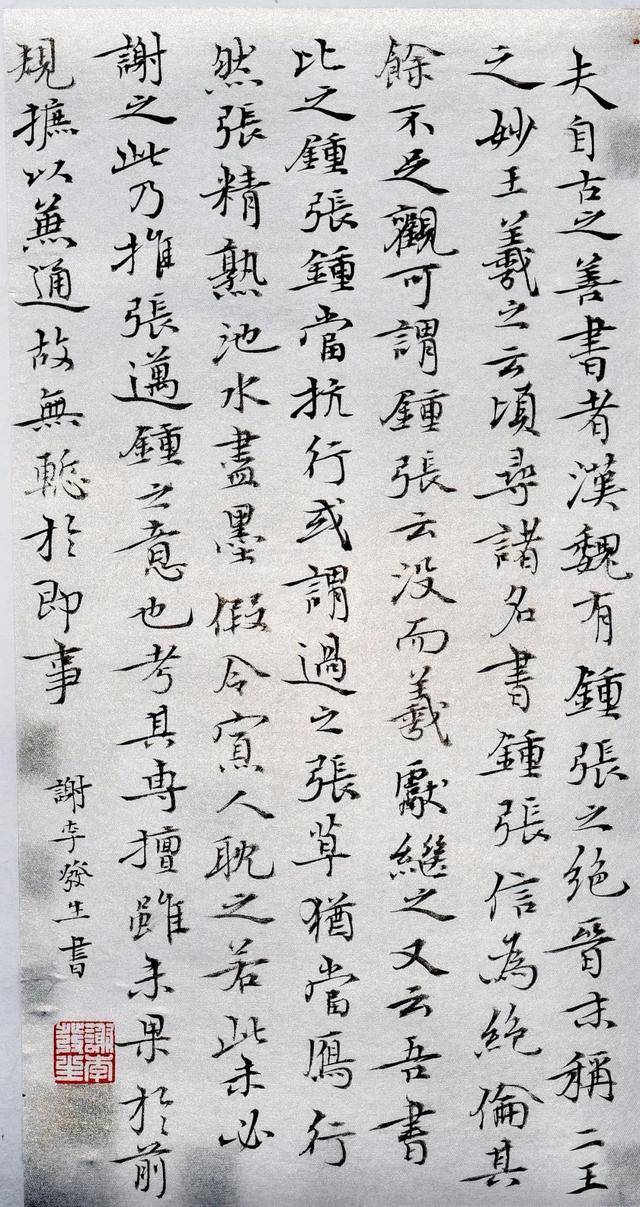 夫自古之善書者漢魏有鍾張之絕晉末稱二王
之妙王羲之云頃尋諸名書鍾張信為絕倫其
餘不足觀可謂鍾張云沒而羲獻繼之又云吾書
比之鍾張鍾當抗行或謂過之張草猶當鴈行
然張精熟池水盡墨假令寡人耽之若此未必
謝之此乃推張邁鍾之意也考其專擅雖未果於前
規摭以兼通故無慙於即事
謝李發生書
謝李
發生